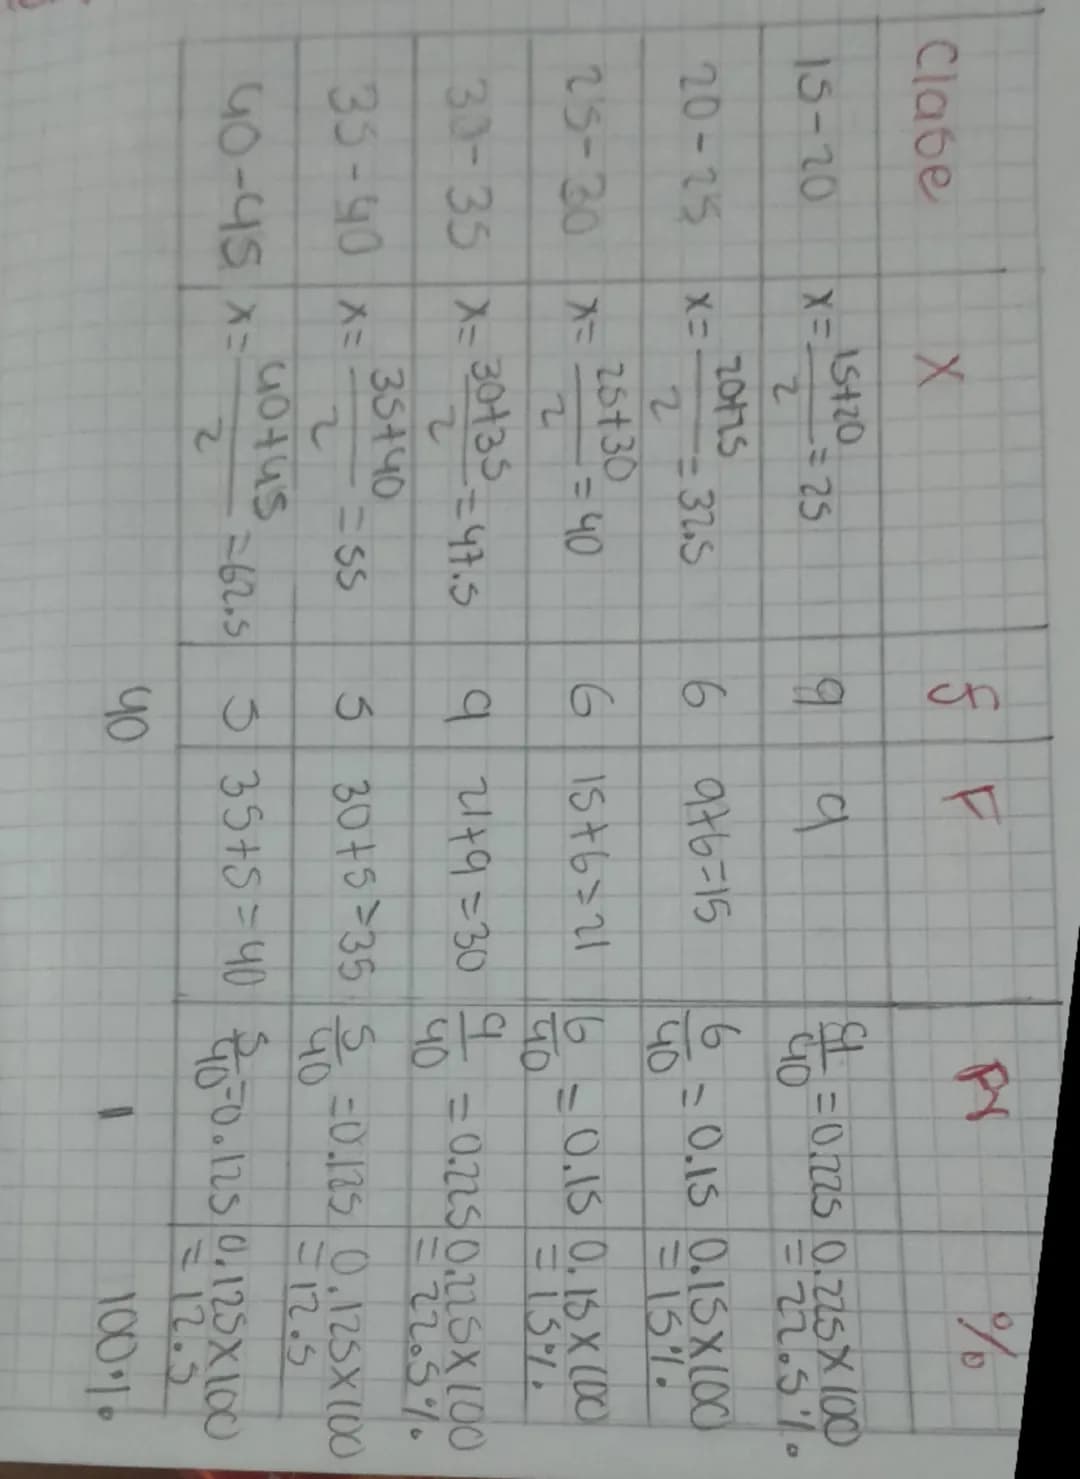 Clase X f F Pi %
15-20 x=15+20/2=25 9 9 9/40=0.225 0.225x100=22.5%
20-25 x=20+25/2=32.5 6 9+6=15 6/40=0.15 0.15x100=15%
25-30 x=25+30/2=40 6 15+6=21 6/40=0.15 0.15x100=15%
30-35 x=30+35/2=47.5 9 21+9=30 9/40=0.225 0.225x100=22.5%
35-40 x=35+40/2=55 5 30+5=35 5/40=0.125 0.125x100=12.5
40-45 x=40+45/2=62.5 5 35+5=40 5/40=0.125 0.125x100=12.5
40 1 100%